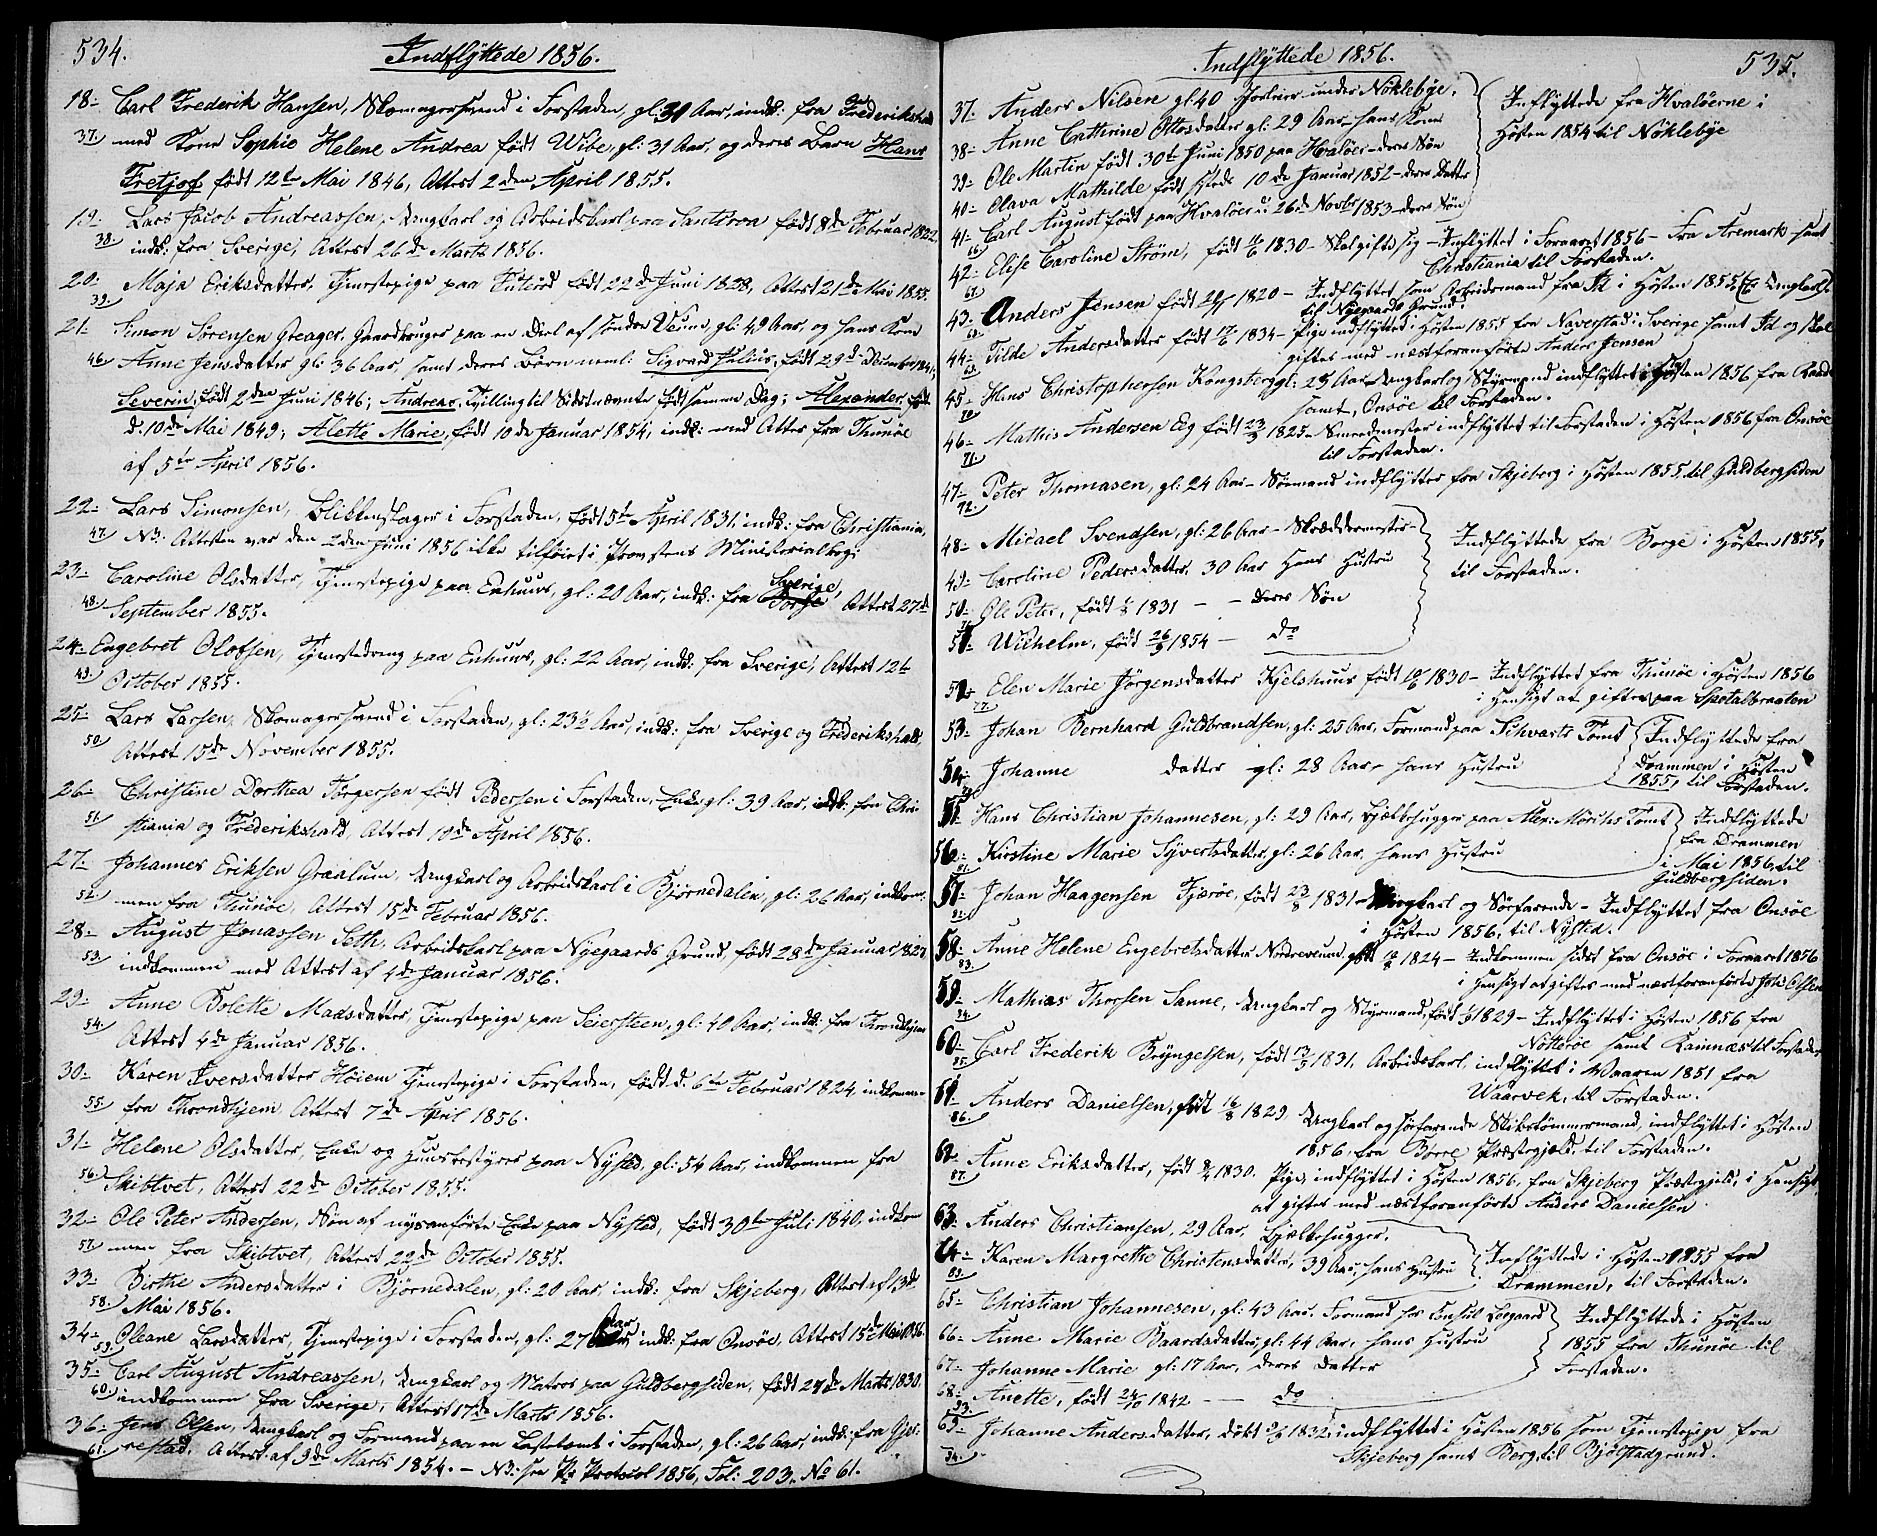 534.
Indflÿttede 1856.
18- Carl Frederik Hansen, Skomagersvend i Forstaden, gl: 31 Aar, indk: fra Frederikshald
37. med Kone Sophie Helene Andrea født Wibe, gl: 31 Aar, og deres Barn Hans
Fretjof født 12te Mai 1846, Attest 2den April 1855.
19- Lars Jacob Andreassen, Ungkarl og Arbeidskarl paa født 8de Februar 1822
38. indk: fra Sverige, Attest 26de Marts 1856.
20- Maja Eriksdatter, Tjenestepige paa født 22de Juni 1828, Attest 21de Mai 1855.
39.
21- Simon Sørensen Greager, Gaardbruger paa en Deel af søndre Veum, gl: 49 Aar, og hans Kone
46. Anne Jensdatter gl: 36 Aar, samt deres Børn neml: Sigvard Julius, født 29de December 1841;
Severin, født 2den Juni 1846; Andreas, Tvilling til Sidstnævnte født samme Dag; Alexander, født
d. 10de Mai 1849; Alette Marie, født 10de Januar 1854; indk: med Attest fra Thunøe
af 5te April 1856.
22- Lars Simonsen, Blikkenslager i Forstaden, født 5te April 1831, indk: fra Christiania,
47. NB: Attesten var den 2den Juni 1856 ikke tilføiet i Provstens Ministerialbog:
23- Caroline Olsdatter, Tjenestepige paa Enhuus, gl: 20 Aar, indk: fra Sverige, Attest 27de
48. September 1855.
24- Engebret Olofsen, Tjenestedreng paa Enhuus, gl: 22 Aar, indk: fra Sverige, Attest 12te
49. October 1855.
25- Lars Larsen, Skomagersvend i Forstaden, gl: 23½ Aar, indk: fra Sverige og Frederikshald,
50. Attest 15de November 1855.
26- Christine Dorthea Torgersen født Pedersen i Forstaden, Enke, gl: 39 Aar, indk: fra Chri-
51. stiania og Frederikshald, Attest 10de April 1856.
27- Johannes Eriksen Graalum, Ungkarl og Arbeidskarl i Bjørnedalen, gl: 26 Aar, indkom-
52. men fra Thunøe, Attest 15de Februar 1856.
28- August Jonassen Seth, Arbeidskarl paa Nÿegaards Grund, født 28de Januar 1827,
53. indkommen med Attest af 4de Januar 1856.
29- Anne Bolette Madsdatter, Tjenestepige paa Seiersteen, gl: 40 Aar, indk: fra Throndhjem
54. Attest 4de Januar 1856.
30- Karen Iversdatter Høiem Tjenestepige i Forstaden, født d. 6te Februar 1824, indkommen
55. fra Throndhjem Attest 7de April 1856.
31- Helene Olsdatter, Enke og Huusbestÿrer paa Nÿsted, gl: 54 Aar, indkommen fra
56. Skibtvet, Attest 22de October 1855.
32- Ole Peter Andersen, Søn af nysanførte Enke paa Nÿsted, født 30te Juli 1840, indkom-
57. men fra Skibtvet, Attest 22de October 1855.
33- Birthe Andersdatter i Bjørnedalen, gl: 20 Aar, indk: fra Skjeberg, Attest af 13de
58. Mai 1856.
34- Oleane Larsdatter, Tjenestepige i Forstaden, gl: 27 Aar, indk: fra Onsøe, Attest 15de Mai 1856.
59.
35- Carl August Andreassen, Ungkarl og Matros paa Guldbergsiden, født 27de Marts 1830,
60. indkommen fra Sverige, Attest 17de Marts 1856.
36- Jens Olsen, Ungkarl og Formand paa en Lastetomt i Forstaden, gl: 26 Aar, indk: fra Gjer-
61. restad. Attest af 9de Marts 1854. - NB: see Pr Protocol 1856, Fol: 203. No 61.

535.
Indflÿttede 1856.
37- Anders Nilsen gl: 40 under Nöklebÿe,
38- Anne Cathrine Ottosdatter gl: 29 Aar - hans Kone
39- Ole Martin født 30te Juni 1850 paa Hvaløer - deres Søn
40- Olava Mathilde født 10de Januar 1852 - deres Datter
41- Carl August født paa Hvaløer 26de Novbr 1853 - deres Søn
Indflÿttede fra Hvaløerne i
Høsten 1854 til Nöklebÿe
42- Elise Caroline Strøm, født 1830 - Skal gifte sig - Indflÿttet i Foraaret 1856 - fra Aremark samt
Christiania til Forstaden.
67.
43- Anders Jensen født 1820 - Indflÿttet som Arbeidsmand fra Id i Høsten 1855
til Nÿegaards Grund.
44- Tilde Andersdatter født 1834 - Pige indflÿttet i Høsten 1855 fra Naverstad i Sverige samt Id og skal
giftes med næstforanførte Anders Jensen
45- Hans Christophersen Kongsberg gl: 25 Aar - Ungkarl og Stÿrmand indflÿttet i Høsten 1856 fra Raade
70. samt Onsøe til Forstaden.
46- Mathis Andersen Eeg født 1825 - Smedmester indflÿttet til Forstaden i Høsten 1856 fra Onsøe
71. til Forstaden.
47- Peter Thomasen, gl: 24 Aar - Sømand indflÿttet fra Skjeberg i Høsten 1855 til Guldbergsiden
72.
48- Micael Svendsen, gl: 26 Aar - Skræddermester -
49- Caroline Pedersdatter, 30 Aar Hans Hustru
50- Ole Peter, født 1831 - - deres Søn
51- Wilhelm, født 26/9 1854 - do
Indflÿttede fra Borge i Høsten 1855,
til Forstaden.
52- Elen Marie Jørgensdatter Kjelshuus født 1830 - Indflÿttet fra Thunøe i Høsten 1856
77. i Hensigt at giftes paa Spetalbraaten
53- Johan Bernhard Guldbrandsen, gl: 25 Aar, Formand paa Tomt
54- Johanne datter gl: 28 Aar, hans Hustru
Indflÿttede fra
Drammen i Høsten
1855, til Forstaden.
55- Hans Christian Johannesen, gl: 29 Aar, Bjælkehugger paa Alex: Tomt
56- Kirstine Marie Sÿvertsdatter, gl: 26 Aar, hans Hustru
Indflÿttede
fra Drammen
i Mai 1856, til
Guldbergsiden.
57- Johan Haagensen Fjærøe, født 23/8 1831 - Ungkarl og Søfarende - Indflÿttet fra Onsøe
i Høsten 1856, til Nÿsted.
58- Anne Helene Engebretsdatter Nordreveum, født 1824 - Indkommen sidst fra Onsøe i Foraaret 1856
83. i Hensigt at giftes med næstforanførte Joh: Olsen
59- Mathias Thorsen Sanne, Ungkarl og Stÿrmand, født 1829 - Indflÿttet i Høsten 1856 fra
84. Nøtterøe samt Ramnæs til Forstaden
60- Carl Frederik Brÿngelsen, født 1831, Arbeidskarl, indflÿttet i Vaaren 1851 fra
85. Waarvek, til Forstaden.
61- Anders Danielsen, født 16/8 1829 Ungkarl og søfarende Skibstømmermand, indflÿttet i Høsten
86. 1856, fra Borre Præstegjeld, til Forstaden.
62- Anne Eriksdatter, født 1830. Pige, indflÿttet i Høsten 1856, fra Skjeberg Præstegjeld, i Hensigt
87. at giftes med næstforanførte Anders Danielsen
63- Anders Christiansen, 29 Aar, Bjælkehugger.
64- Karen Margrethe Christensdatter, 39 Aar, hans Hustru
89.
Indflÿttede i Høsten 1855 fra
Drammen, til Forstaden.
65- Christian Johannesen, gl: 43 Aar, Formand hos Consul
66- Anne Marie Baardsdatter, gl: 44 Aar, hans Hustru
67- Johanne Marie gl: 17 Aar, deres Datter
68- Anette, født 24/10 1842 - - do
93.
Indflÿttede i Høsten
1855 fra Thunøe til
Forstaden.
69- Johanne Andersdatter, døbt 1832, indflÿttet i Høsten 1856 som Tjenestepige fra
94. Skjeberg samt Berg, til Bjølstadgrund.